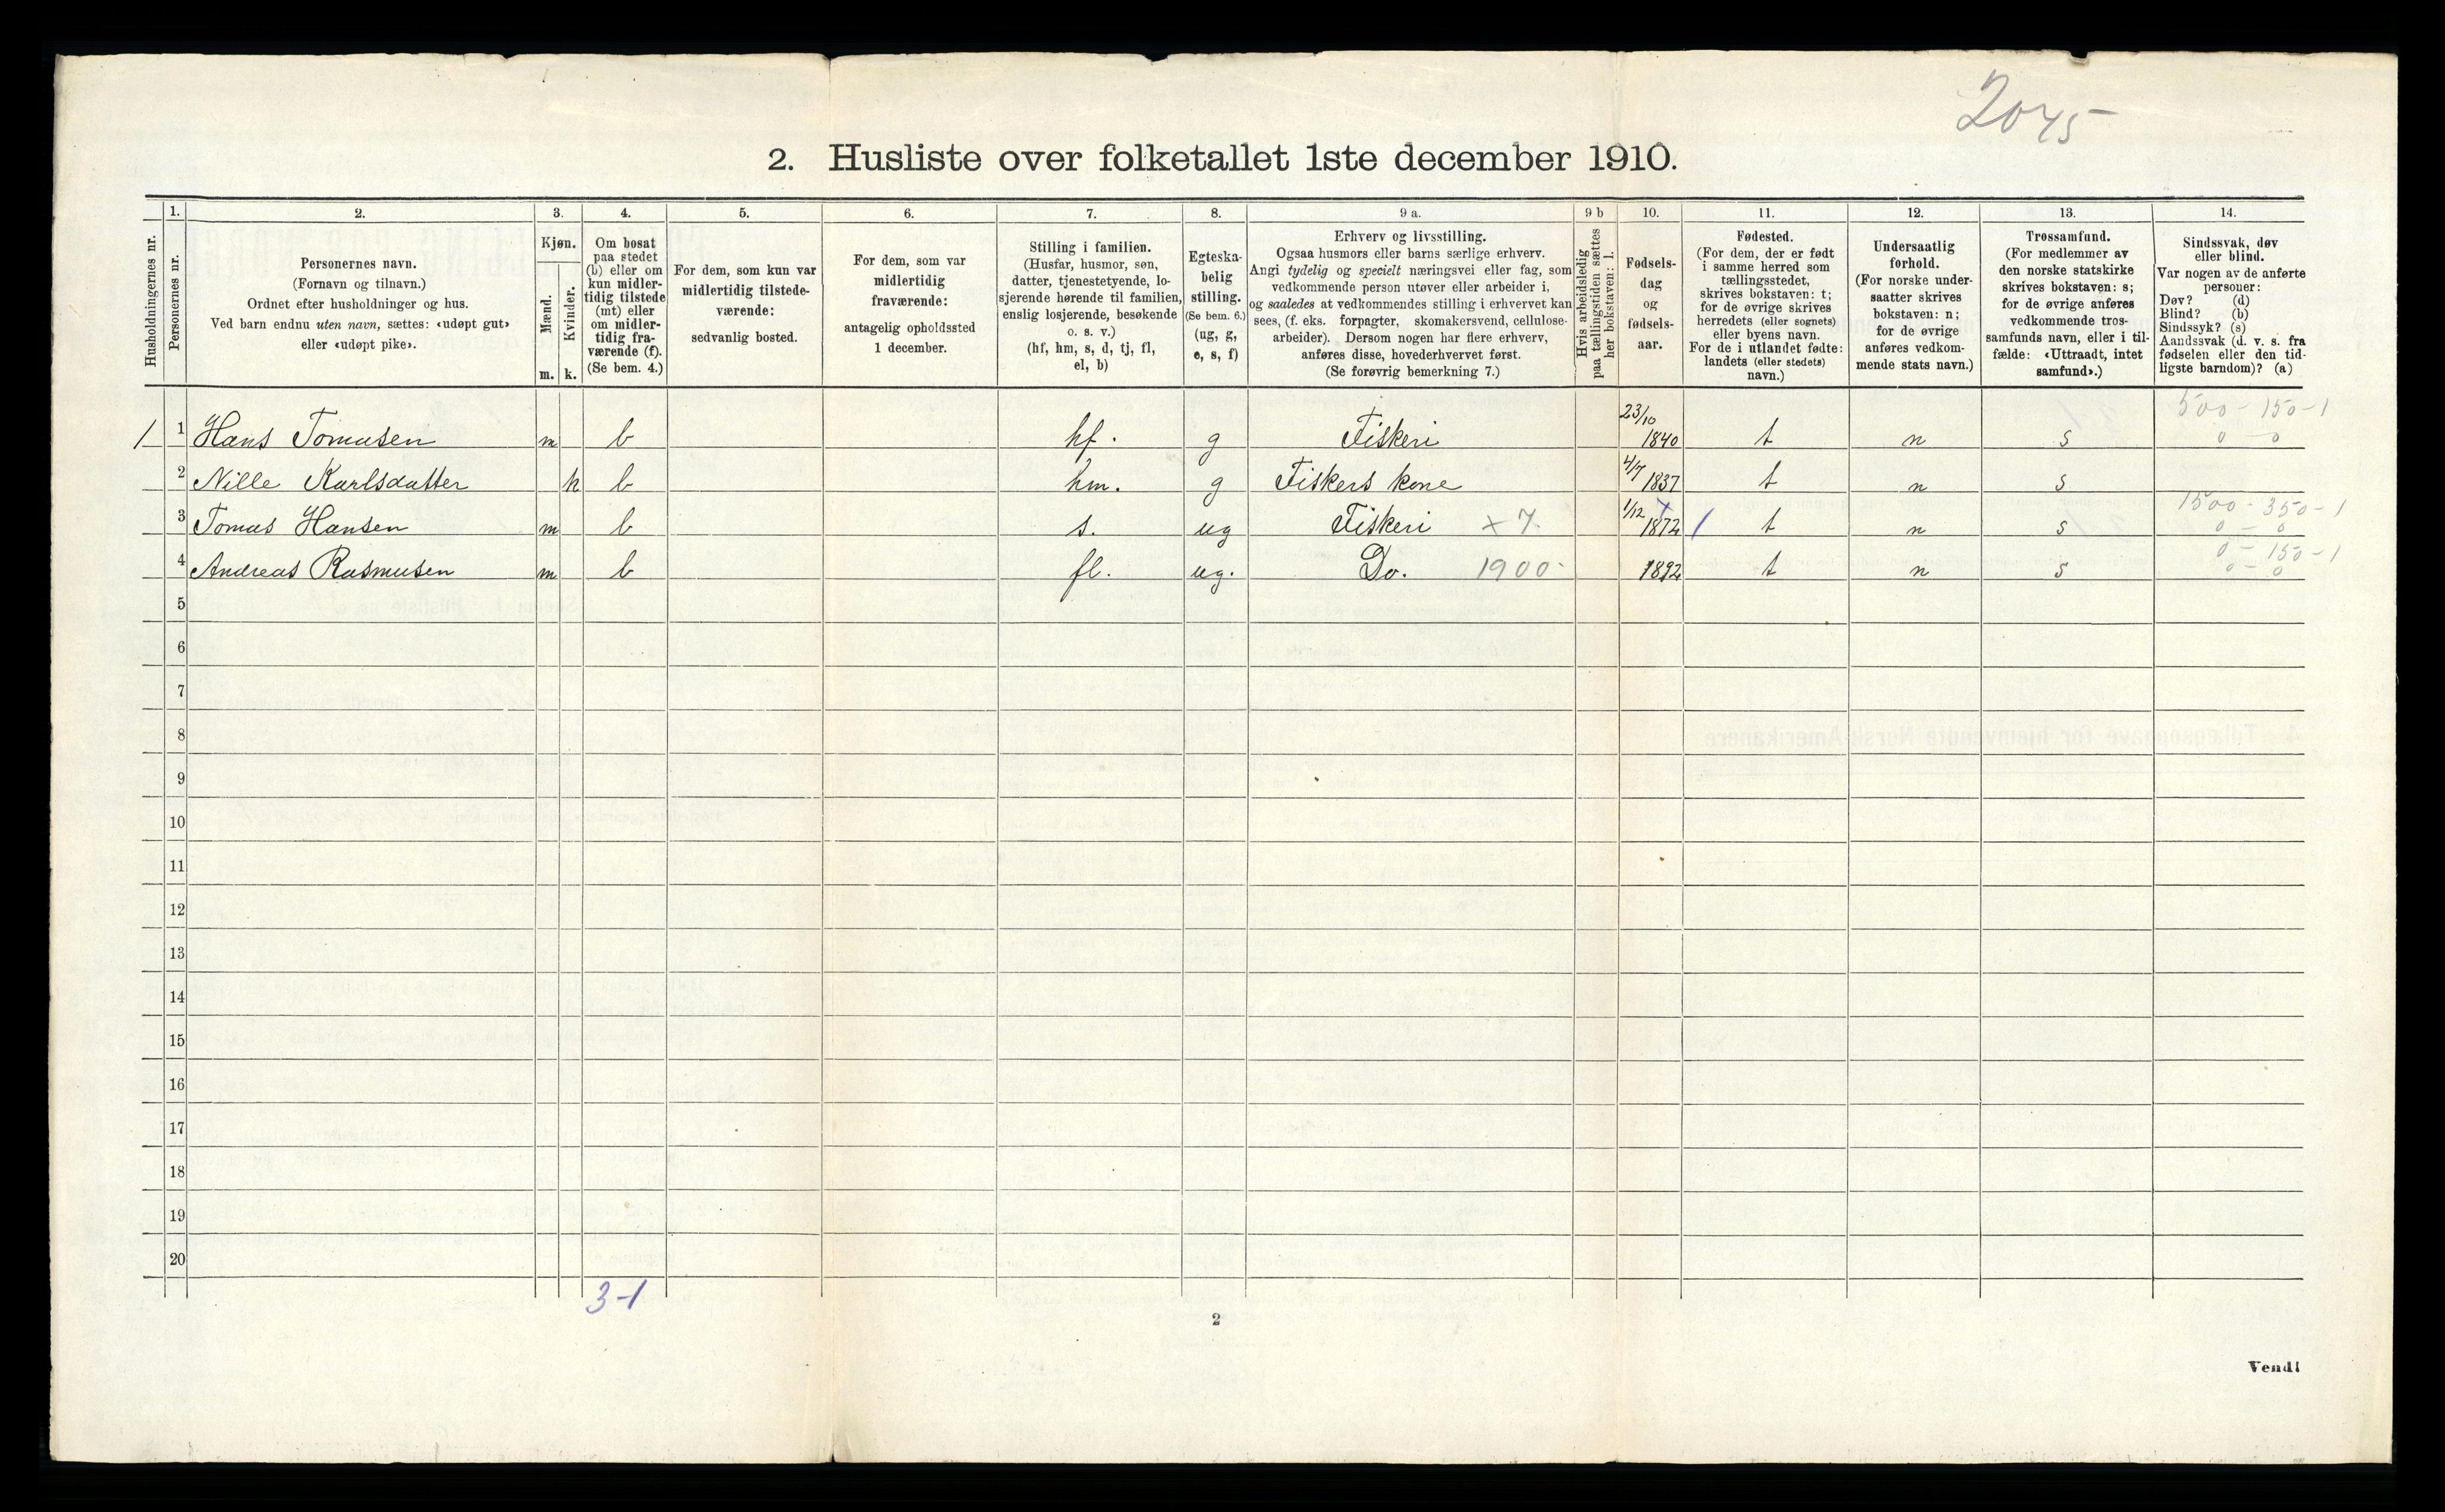 2045
2. Husliste over folketallet 1ste december 1910.
Husholdningernes nr.
1.
Personernes nr.
2.
Personernes navn.
(Fornavn og tilnavn.)
Ordnet efter husholdninger og hus.
Ved barn endnu uten navn, sættes: «udøpt gut»
eller «udøpt pike».
3.
Kjøn.
Mænd.
Kvinder.
m. k.
4.
Om bosat
paa stedet
(b) eller om
kun midler-
tidig tilstede
(mt) eller
om midler-
tidig fra-
værende (f).
(Se bem. 4.)
5.
For dem, som kun var
midlertidig tilstede-
værende:
sedvanlig bosted.
6.
For dem, som var
midlertidig
fraværende:
antagelig opholdssted
1 december.
7.
Stilling i familien.
(Husfar, husmor, søn,
datter, tjenestetyende, lo-
sjerende hørende til familien,
enslig losjerende, besøkende
o. s. v.)
(hf, hm, s, d, tj, fl,
el, b)
8.
Egteska-
belig
stilling.
(Se bem. 6.)
(ug, g,
e, s, f)
9 a.
Erhverv og livsstilling.
Ogsaa husmors eller barns særlige erhverv.
Angi tydelig og specielt næringsvei eller fag, som
vedkommende person utøver eller arbeider i,
og saaledes at vedkommendes stilling i erhvervet kan
sees, (f. eks. forpagter, skomakersvend, cellulose-
arbeider). Dersom nogen har flere erhverv,
anføres disse, hovederhvervet først.
(Se forøvrig bemerkning 7.)
9 b
Hvis arbeidsledig
paa tællingstiden sættes
her bokstaven: l.
10.
Fødsels-
dag
og
fødsels-
aar.
11.
Fødested.
(For dem, der er født
i samme herred som
tællingsstedet,
skrives bokstaven: t;
for de øvrige skrives
herredets (eller sognets)
eller byens navn.
For de i utlandet fødte:
landets (eller stedets)
navn.)
12.
Undersaatlig
forhold.
(For norske under-
saatter skrives
bokstaven: n;
for de øvrige
anføres vedkom-
mende stats navn.)
13.
Trossamfund.
(For medlemmer av
den norske statskirke
skrives bokstaven: s;
for de øvrige anføres
vedkommende tros-
samfunds navn, eller i til-
fælde: «Uttraadt, intet
samfund».)
14.
Sindssvak, døv
eller blind.
Var nogen av de anførte
personer:
Døv? (d)
Blind? (b)
Sindssyk? (s)
Aandssvak (d. v. s. fra
fødselen eller den tid-
ligste barndom)? (a)
1 1 Hans Tomasen m b hf. g Fiskeri 23/10 1840 t n s 500-150-1 0-0
2 Nille Karlsdatter k b hm. g Fiskers kone 4/7 1837 t n s
3 Tomas Hansen m b s. ug Fiskeri x 7. 1/12 1872 t n s 1500-350-1 0-0
4 Andreas Rasmusen m b fl. ug. Do. 1900- 1892 t n s 0-150-1 0-0
5
6
7
8
9
10
11
12
13
14
15
16
17
18
19
20
3-1
2
Vend!